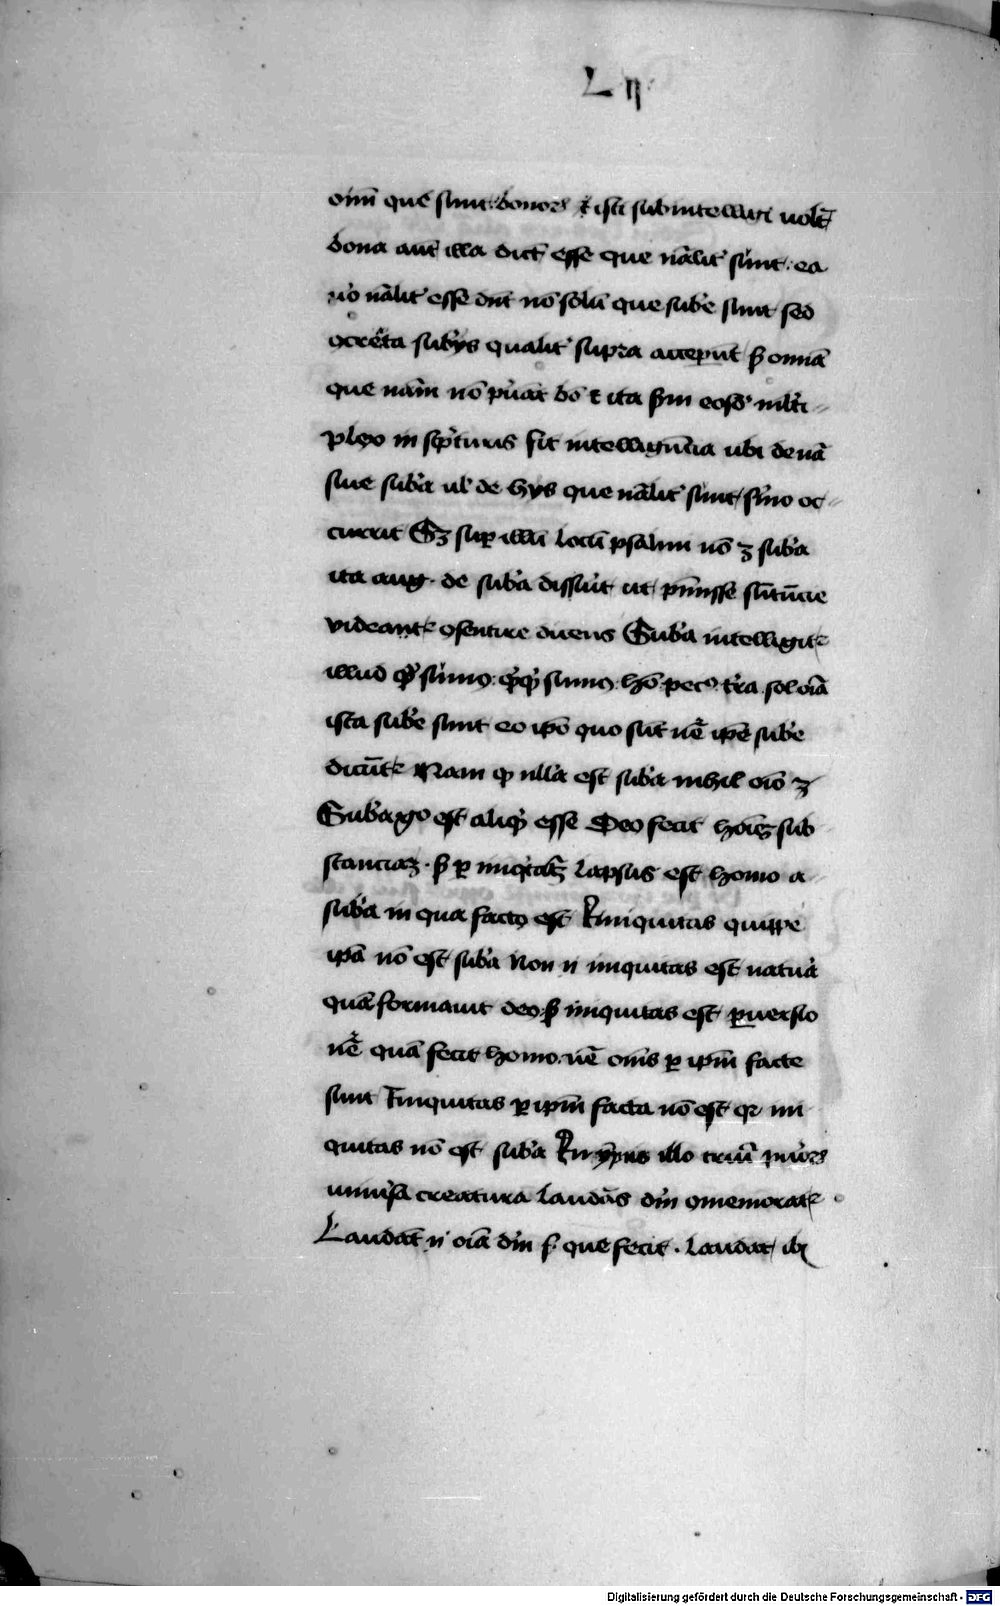 L ij
oīm que sunt bonorum et isti subintelligi uolūt
bona aut̄ illa dicūt esse que nālit̾ sunt. ea
u͛o nālit̾ esse dn̄t nō solū que sub̾e sunt sed
ꝯcreta sub̾ijs qualit̾ supra acceperūt ß omnia
que nām nō puāt bō et ita ßm eosd̾ ml̾ti
plex in sc̾pturis fit intelligēncia ubi de nā
siue sub̾a ul̾ de hijs que nālit̾ sunt / s̾mo oc
currit Sꝫ suꝑ illū locū psalmi nō ē sub̾a
ita aug. de sub̾a disserit ut p̄misse sn̄tencie
videant̾ ꝯsentire dicens Sub̾a intelligit̾
illud qd̾ sumus. qͥcqͥd sumus. hō. pecꝰ. t̾ra. sol oīa
ista sub̾e sunt eo ip̄o quo sūt nē ip̄e sub̾e
dicūt̾ Nam qd̾ nll̾a est sub̾a nihil oīo ē
Sub̾a g̊ est aliqd̾ esse Deus fecit hoīeꝫ sub
stanciaꝫ. ß ꝑ iniqͥtatēꝫ lapsus est homo a
sub̾a in qua factus est Et iniquitas quippe
ip̄a nō est sub̾a Non n̄ iniquitas est natura
quā formauit deus. ß iniquitas est ꝑuersio
nē quā fecit homo. nē om̄s ꝑ ip̄m facte
sunt Iniquitas ꝑ ip̄m facta nō est qꝛ ini
quitas nō est sub̾a Et in ympnis illo triū pueroꝝ
uniu͛sa creatura laudās dn̄m ꝯmemorat̾
Laudāt n̄ oīa dn̄m ß que fecit. laudat / ibi
Digitalisierung gefördert durch die Deutsche Forschungsgemeinschaft - DFG